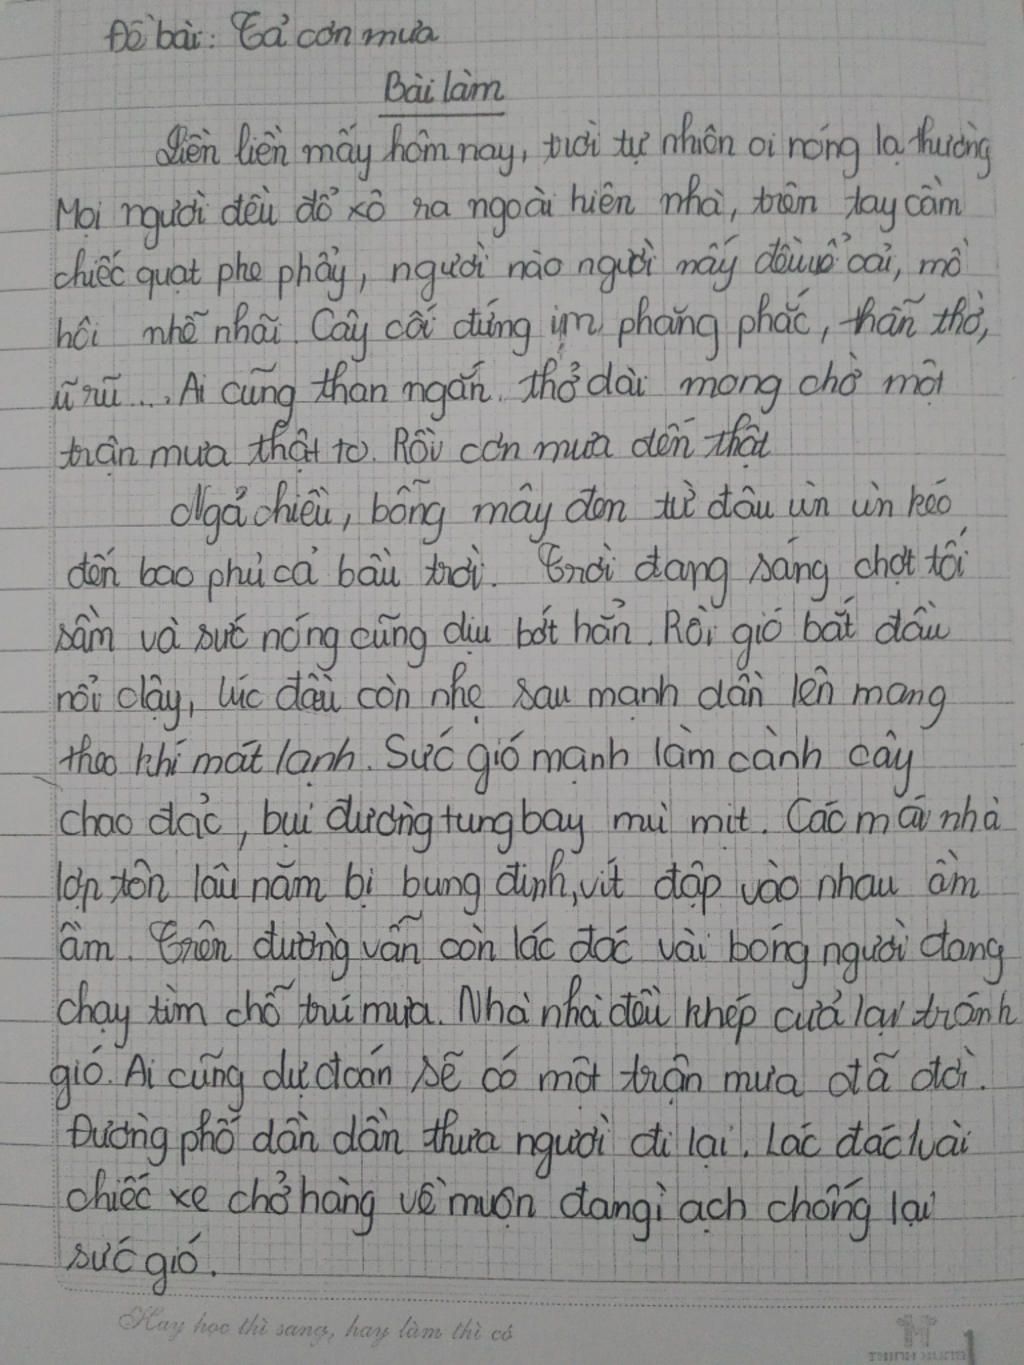 Đề bài: Tả cơn mưa
Bài làm
Liền liền mấy hôm nay, trời tự nhiên oi nóng lạ thường
Mọi người đều đổ xô ra ngoài hiên nhà, trên tay cầm
chiếc quạt phe phẩy, người nào người nấy đều uể oải, mồ
hôi nhễ nhãi. Cây cối đứng im phăng phắc, thẫn thờ,
ũ rũ... Ai cũng than ngắn thở dài mong chờ một
trận mưa thật to. Rồi cơn mưa đến thật
Ngả chiều, bỗng mây đen từ đâu ùn ùn kéo
đến bao phủ cả bầu trời. Trời đang sáng chợt tối
sầm và sức nóng cũng dịu bớt hẳn. Rồi gió bắt đầu
nổi dậy, lúc đầu còn nhẹ sau mạnh dần lên mang
theo khí mát lạnh. Sức gió mạnh làm cành cây
chao đảo, bụi đường tung bay mù mịt. Các mái nhà
lợp tôn lâu năm bị bung đinh, vít đập vào nhau ầm
ầm. Trên đường vẫn còn lác đác vài bóng người đang
chạy tìm chỗ trú mưa. Nhà nhà đều khép cửa lại tránh
gió. Ai cũng dự đoán sẽ có một trận mưa đã đời.
Đường phố dần dần thưa người đi lại. Lác đác vài
chiếc xe chở hàng về muộn đang ì ạch chống lại
sức gió.
Hay học thì sang, hay làm thì có